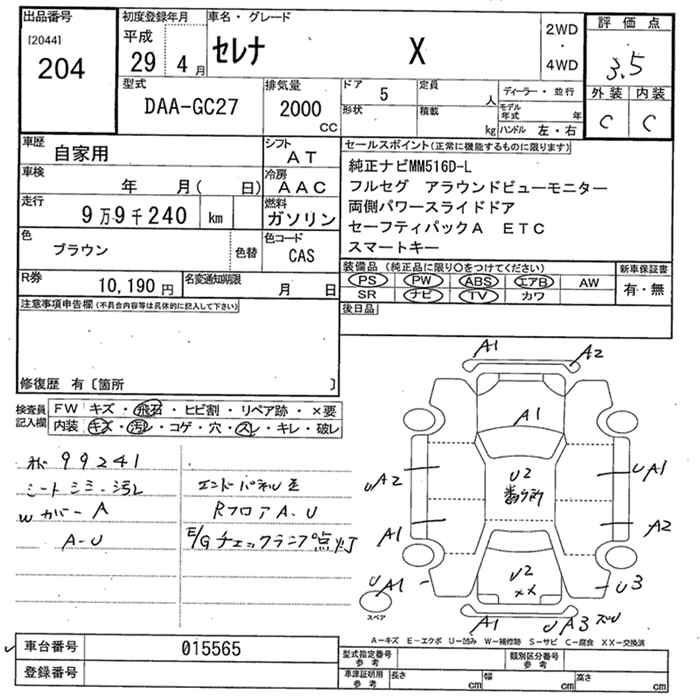 出品番号 初度登録年月 車名・グレード 評価点
[2044] 平成 2WD
204 29 4月 セレナ X ・ 3.5
4WD
型式 排気量 ドア 5 定員 人 ディーラー・並行 外装 内装
DAA-GC27 2000 CC 形状 積載 kg モデル年式 年 C C
ハンドル 左・右
車歴 自家用 シフト AT セールスポイント(正常に機能するものに限ります)
車検 年 月( 日) 冷房 AAC 純正ナビMM516D-L
フルセグ アラウンドビューモニター
走行 9万9千240 km 燃料 ガソリン 両側パワースライドドア
セーフティパックA ETC
色 ブラウン 色替 色コード CAS スマートキー
R券 10,190円 名変通知期限 月 日 装備品(純正品に限り○をつけてください) 新車保証書
PS PW ABS エアB AW 有・無
SR ナビ TV カワ
注意事項申告欄(不具合内容等は具体的に記入して下さい) 後日品
修復歴 有〔箇所 〕
検査員記入欄 FW キズ・飛石・ヒビ割・リペア跡・×要
内装 キズ・汚レ・コゲ・穴・スレ・キレ・破レ
99241
シートシミ・汚レ エンドパネル歪
Wカバー A RフロアA・U
A-U E/Gチェックランプ点灯
A1 A2
A1
UA2 U2 UA1
A1 A2
UA1 U2 XX U3
スペア A1 UA3
A-キズ E-エクボ U-凹み W-補修跡 S-サビ C-腐食 XX-交換済
車台番号 015565
登録番号
型式指定番号 参考 類別区分番号 参考
車庫証明用 参考 長さ cm 幅 cm 高さ cm